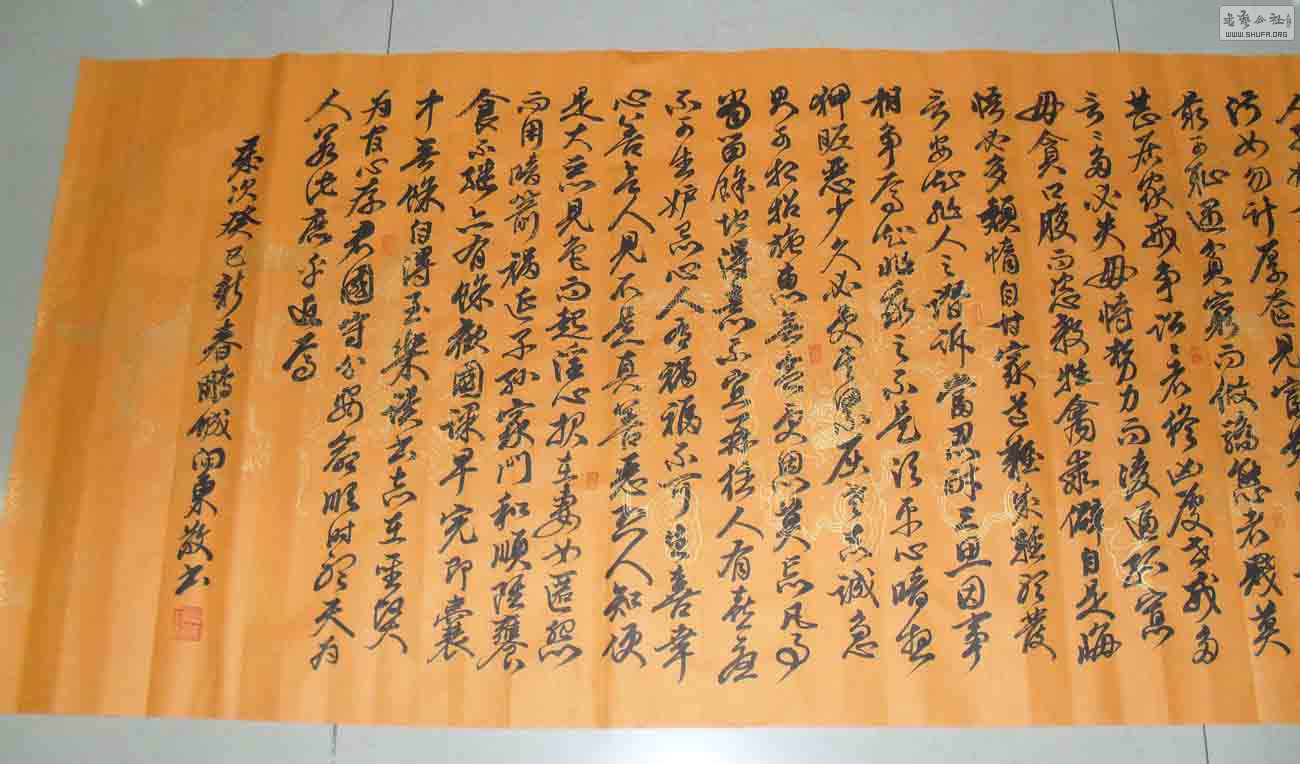 女勿计厚奁見富
最可恥遇貧窮而作驕態者賤莫
甚居家戒争訟訟者終凶處世戒多
言言多必失毋恃势力而凌逼孤寡
毋貪口腹而恣殺牲禽乖僻自是悔
悟必多頹惰自甘家道難成輕聽發
言安知非人之譖訴當忍耐三思因事
相争焉知非我之不是須平心暗想
狎昵惡少久必受其累屈志老誠急
則可相依施惠無念受恩莫忘凡事
當留餘地得意不宜再往人有喜慶
不可生妒忌心人有禍患不可生喜幸
心善欲人見不是真善惡恐人知便
是大惡見色而起淫心报在妻女匿怨
而用暗箭禍延子孫家門和順雖饔
食不繼亦有餘歡國課早完即囊
無餘自得至樂讀书志在聖賢
为官心存君國守分安命順时聽天为
人若此庶乎近焉
歲次癸巳新春鵬城向東敬书
书艺公社
WWW.SHUFA.ORG